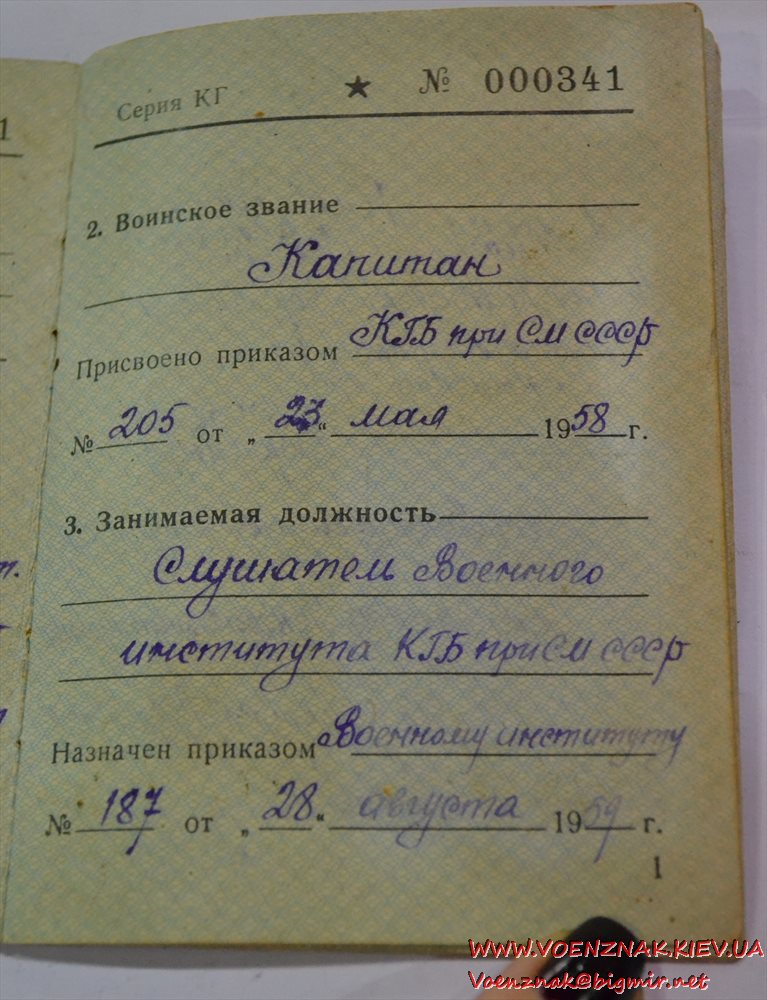 Серия КГ ★ № 000341
2. Воинское звание
Капитан
Присвоено приказом КГБ при СМ СССР
№ 205 от „23“ мая 1958 г.
3. Занимаемая должность
Слушатель Военного
института КГБ при СМ СССР
Назначен приказом Военному институту
№ 187 от „28“ августа 1959 г.
1
WWW.VOENZNAK.KIEV.UA
Voenznak@bigmir.net